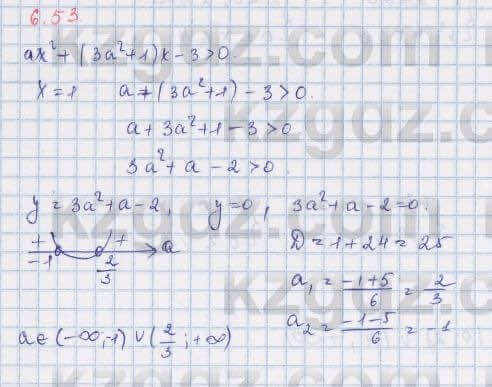 6.53
ax² + (3a²+1)x - 3 > 0.
x = 1   a + (3a²+1) - 3 > 0.
a + 3a² + 1 - 3 > 0
3a² + a - 2 > 0.
y = 3a² + a - 2,   y = 0,   3a² + a - 2 = 0.
+ + a   D = 1 + 24 = 25
-1   2/3   a₁ = (-1+5)/6 = 2/3
a₂ = (-1-5)/6 = -1
a ∈ (-∞; -1) ∪ (2/3; +∞)